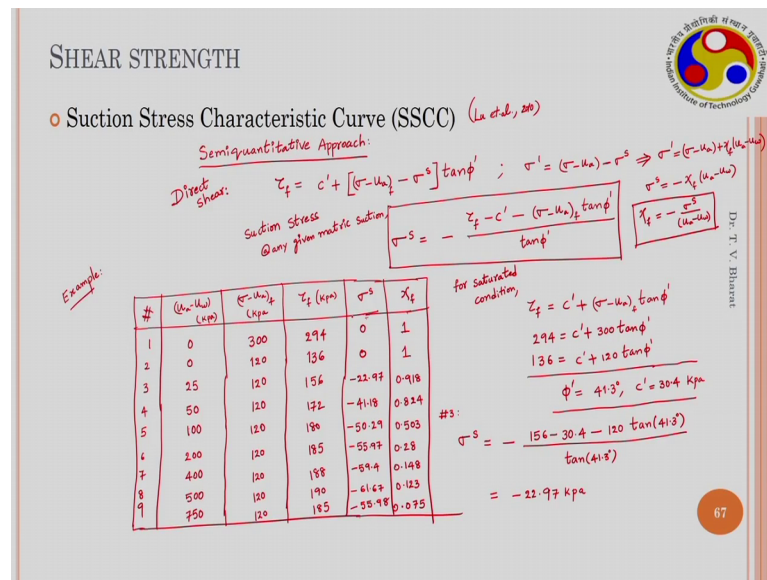 SHEAR STRENGTH
भारतीय प्रौद्योगिकी संस्थान गुवाहाटी
Indian Institute of Technology Guwahati
Suction Stress Characteristic Curve (SSCC) (Lu et al., 2010)
Semiquantitative Approach:
Direct shear: τf = c' + [(σ-ua)f - σˢ] tanφ' ; σ' = (σ-ua) - σˢ ⇒ σ' = (σ-ua) + χf (ua-uw)
σˢ = -χf (ua-uw)
Suction Stress @any given matric suction, σˢ = - (τf - c' - (σ-ua)f tanφ') / tanφ'
χf = - σˢ / (ua-uw)
Example:
# (ua-uw) (kPa) (σ-ua)f (kPa τf (kPa) σˢ χf
1 0 300 294 0 1
2 0 120 136 0 1
3 25 120 156 -22.97 0.918
4 50 120 172 -41.18 0.824
5 100 120 180 -50.29 0.503
6 200 120 185 -55.97 0.28
7 400 120 188 -59.4 0.148
8 500 120 190 -61.67 0.123
9 750 120 185 -55.98 0.075
for saturated condition,
τf = c' + (σ-ua)f tanφ'
294 = c' + 300 tanφ'
136 = c' + 120 tanφ'
φ' = 41.3°, c' = 30.4 kPa
#3:
σˢ = - (156 - 30.4 - 120 tan(41.3°)) / tan(41.3°)
= -22.97 kPa
Dr. T. V. Bharat
67